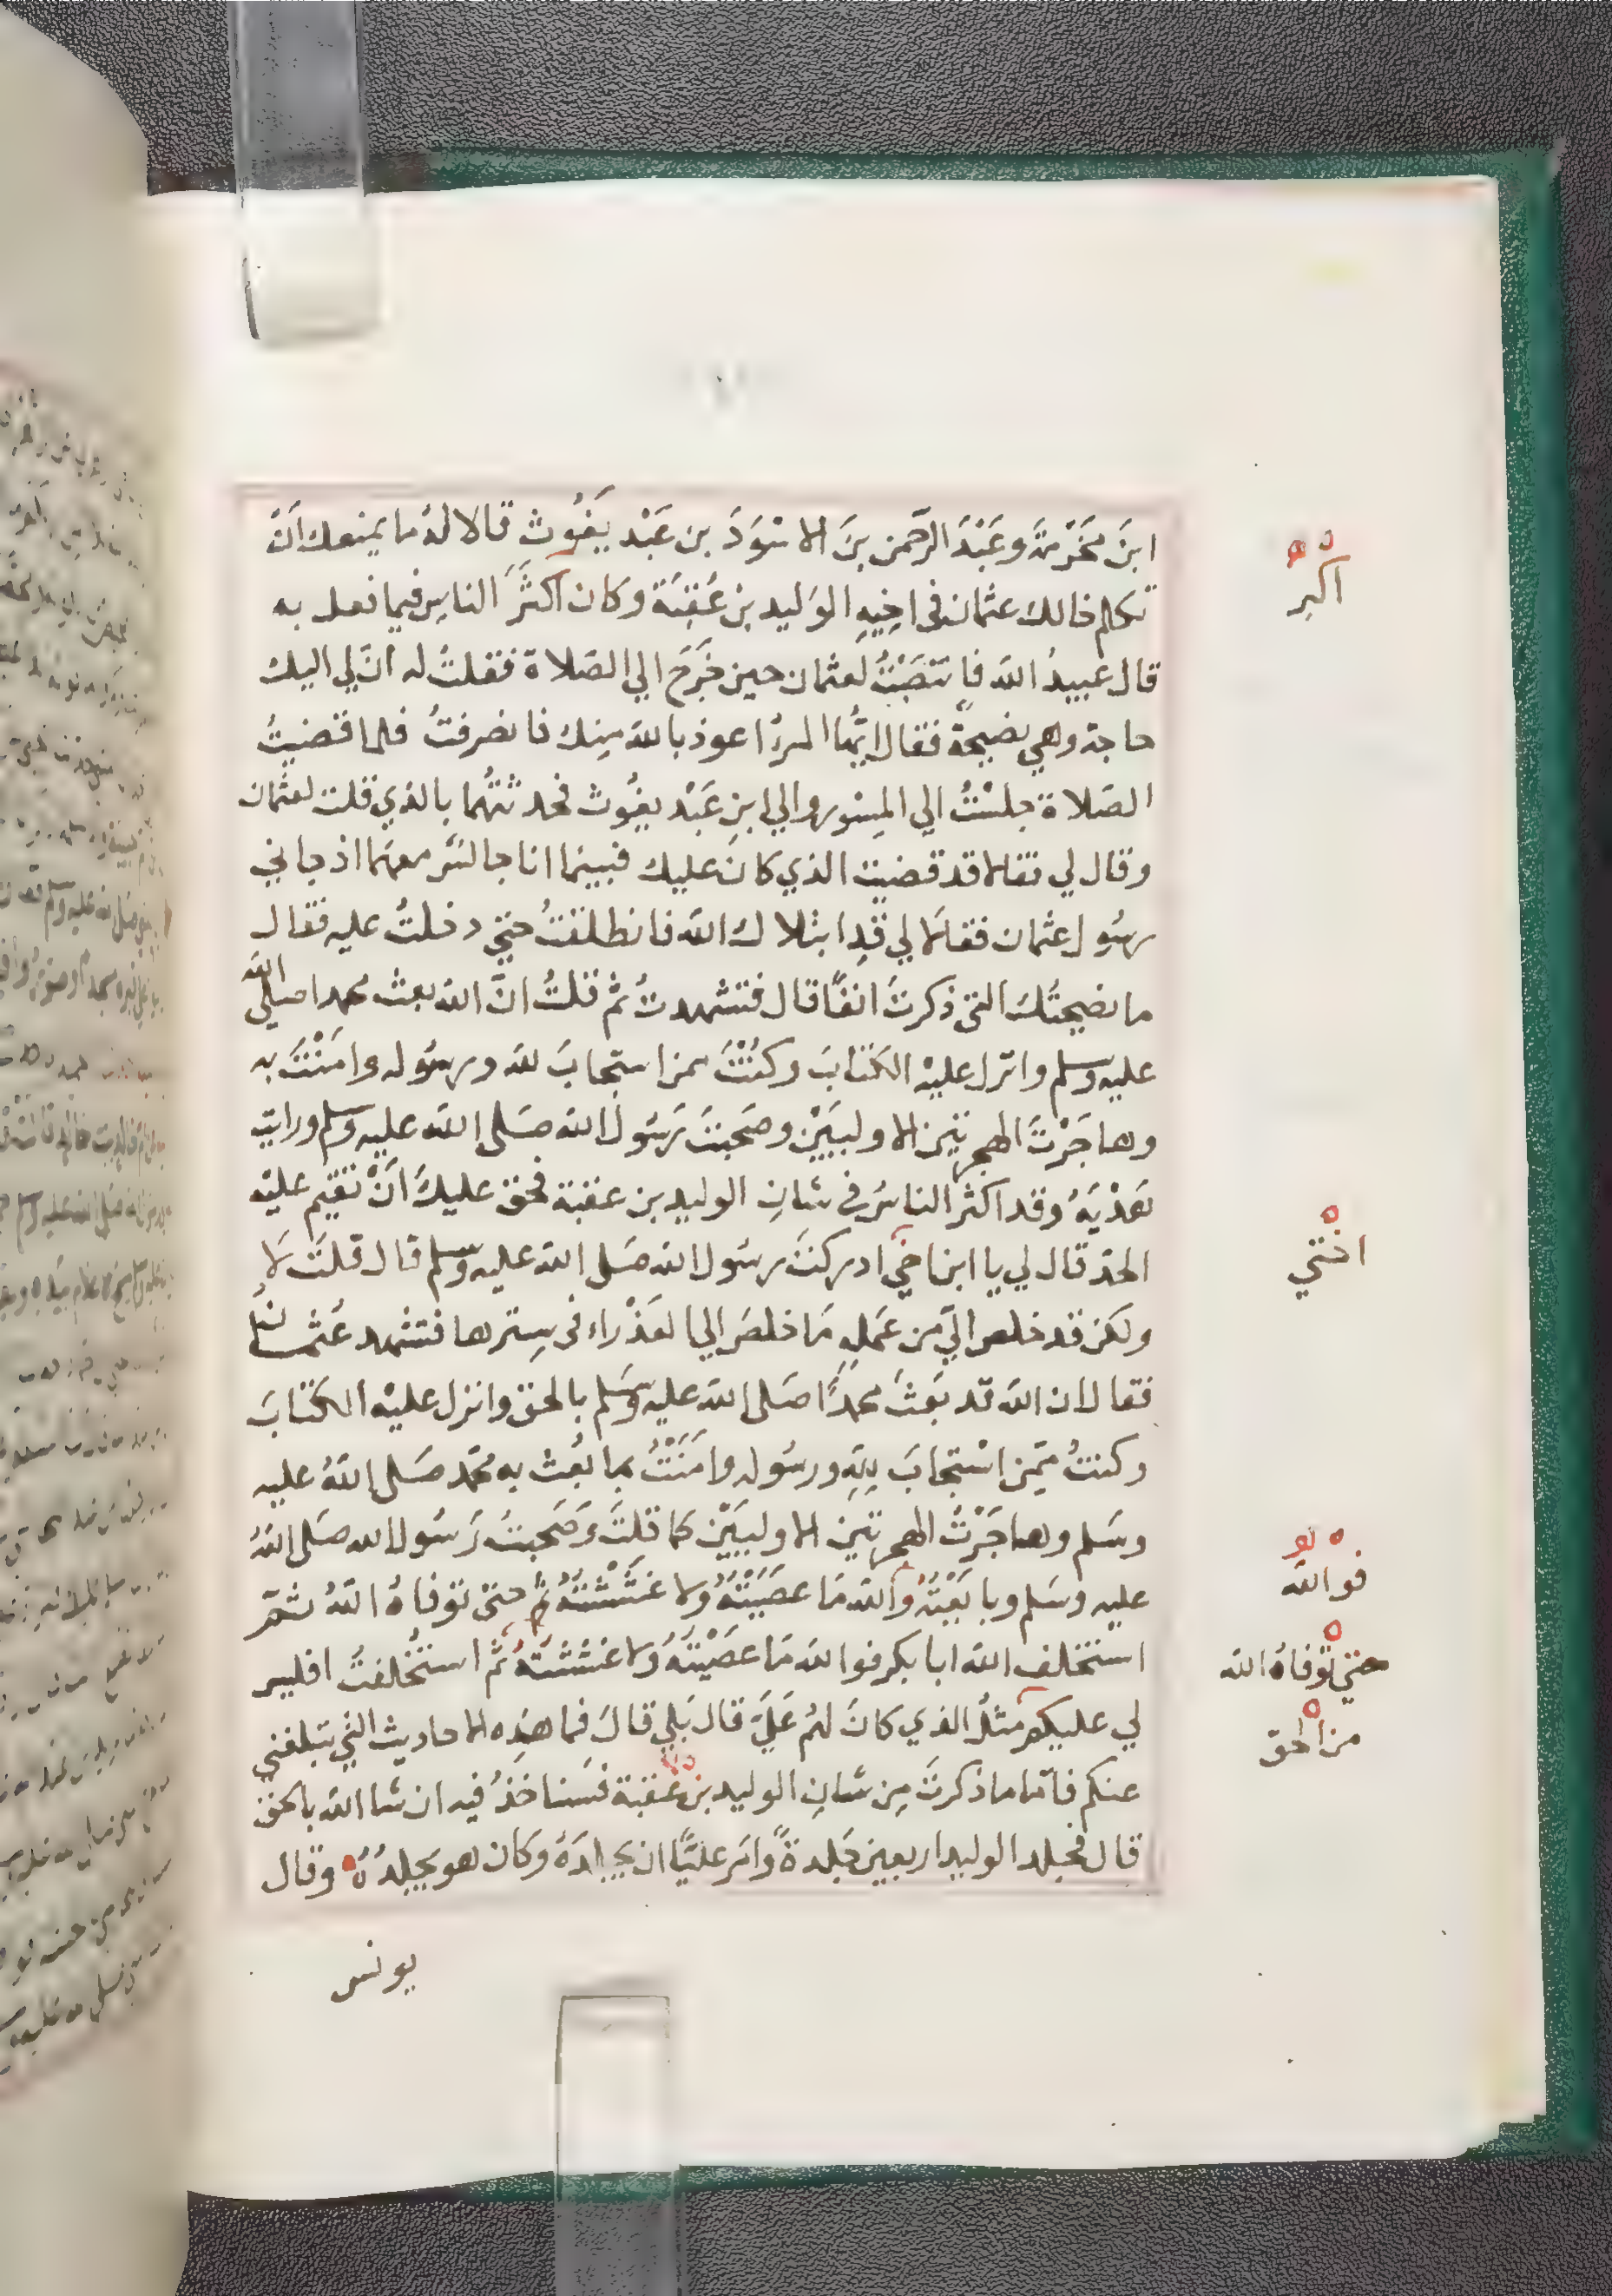 ابنَ مَخْرَمَةَ وعَبْدَ الرحمن بنَ الاسْوَدَ بن عَبْد يَغُوث قالا لهُ ما يمنعك أنْ
تكلم خالك عثمان في اخِيهِ الوَليد بن عُقبَة وكان اكثَرَ الناس فيما فعل به
قال عبيدُ الله فانتصَبْتُ لعثمان حين خَرَجَ الي الصَلاة فقلتُ له انّ لي اليك
حاجة وهي نصيحةٌ فقال ايُّها المرءُ اعوذ بالله مِنك فانصرفتُ فلما قضيتُ
الصَلاة جلسْتُ الي المِسْور والي ابنِ عَبْد يغُوث فحدثتُهما بالذي قلت لعثمان
وقال لي فقالا قد قضيت الذي كانَ عليك فبينما انا جالسٌ معهَما اذ جاني
رسُول عثمان فقالا لي قَدِ ابتلاك الله فانطلقتُ حتي دخلتُ عليه فقال
ما نصيحتُك التي ذكرتَ انفًا قال فتشهدتُ ثم قلتُ انَّ الله بعث محمدا صلي الله
عليه وسلم وانزل عليْهِ الكتابَ وكنْتَ ممن استجابَ لله ورسُوله وامَنْتَ به
وهاجَرْتَ الهجرتين الاوليَيْن وصَحبتَ رَسُول الله صَلى الله عليه وسلم ورايت
هَدْيَهُ وقد اكثر الناسُ في شانِ الوليد بن عقبة فحق عليكَ اَنْ تقيم عليْه
الحدّ قال لي يا ابن اخي ادركتَ رسُول الله صَلى الله عليه وسلم قال قلتُ لا
ولكن قد خلص اليّ من عَمَلِهِ مَا خلصَ الي العَذْراء في سِترها فتشهد عُثمانُ
فقال ان الله قد بَعَثَ محمدًا صَلى الله عليه وسَلم بالحق وانزل عليْه الكتابَ
وكنتُ مِمَّن اسْتجابَ لِلّهِ ورسُوله وامَنْتُ بما بُعث به محمّد صَلى اللهُ عليه
وسَلم وهاجَرْتُ الهجرتين الاوليَيْن كما قلتَ وَصَحبتُ رَسُول الله صَلى اللهُ
عليه وسَلم وبايَعْتُهُ وَالله مَا عصَيْتُهُ ولا غَشَشْتُهُ ثم حتىْ توَفاهُ اللهُ ثمّ
استخلف الله ابا بكر فوالله مَا عصَيْتهُ وَلا غششتهُ ثُم استُخلفتُ افليس
لي عليكم مثلُ الذي كانَ لهُم عَلَيَّ قال بَلي قالَ فما هذِه الاحاديث التي تبلغني
عنكم فاما ما ذكرتَ مِن شانِ الوليد بن عقبة فسَناخذُ فيه ان شا الله بالحق
قال فجلد الوليد اربعين جَلدةً وامَر عليًّا ان يجلدَهُ وكان هو يجلِدُهُ وقال
يونس
اكبر
اختي
فوالله
حتي توفاهُ الله
من الحق